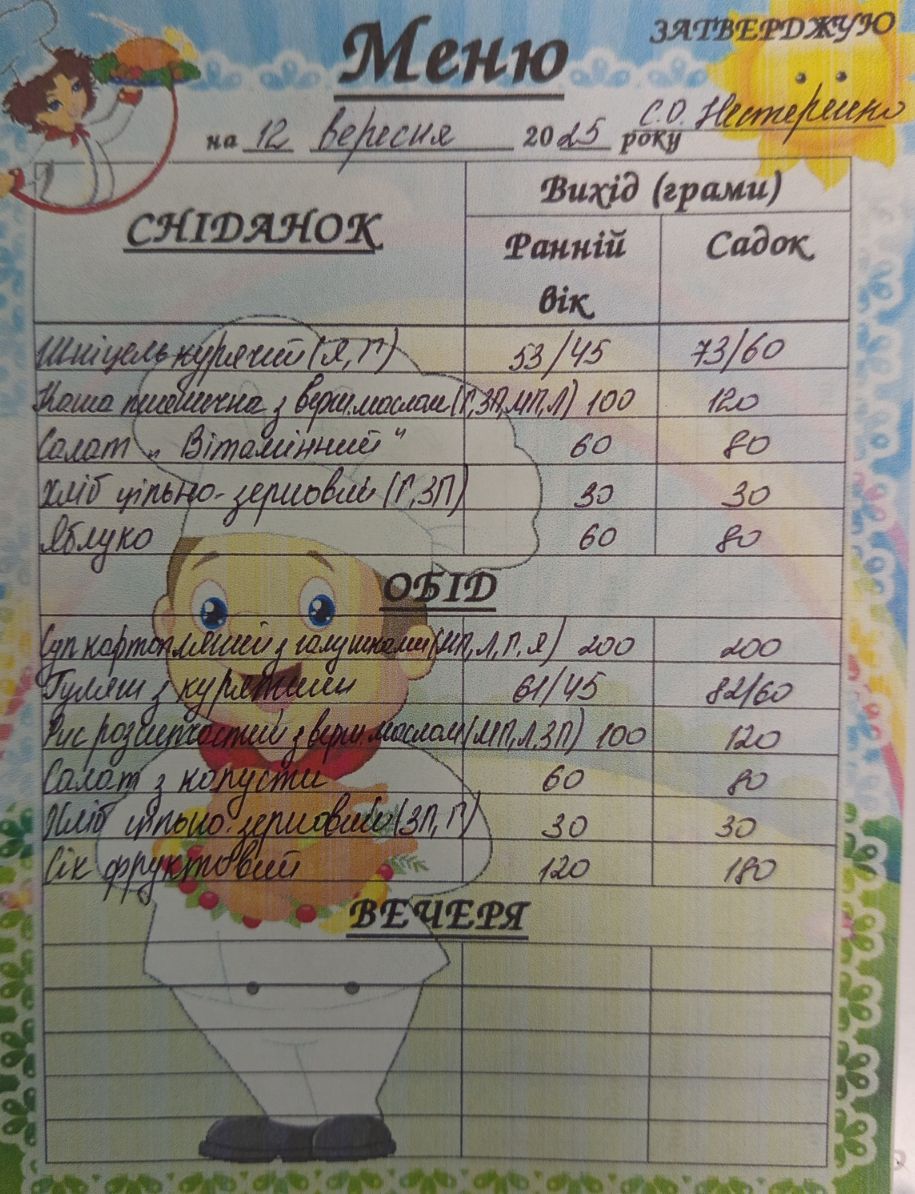 Меню
ЗАТВЕРДЖУЮ
С.О. Нестеренко
на 12 вересня 2025 року
СНІДАНОК
Вихід (грами)
Ранній вік
Садок
Шніцель курячий (Я, Г) 53/45 73/60
Каша пшенична з верш. маслом (Г, ЗП, МП, Л) 100 120
Салат „Вітамінний" 60 80
Хліб цільно-зерновий (Г, ЗП) 30 30
Яблуко 60 80
ОБІД
Суп картопляний з галушками (МП, Л, Г, Я) 200 200
Гуляш з курятини 61/45 82/60
Рис розсипчастий з верш. маслом (МП, Л, ЗП) 100 120
Салат з капусти 60 80
Хліб цільно-зерновий (ЗП, Г) 30 30
Сік фруктовий 120 180
ВЕЧЕРЯ